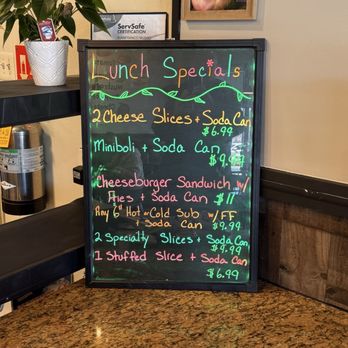 ServSafe
CERTIFICATION
Lunch Specials
2 Cheese Slices + Soda Can
$6.99
Miniboli + Soda Can
$9.99
Cheeseburger Sandwich w/
Fries + Soda Can $11
Any 6" Hot or Cold Sub w/ FF
+ Soda Can $9.99
2 Specialty Slices + Soda Can
$9.99
1 Stuffed Slice + Soda Can
$6.99